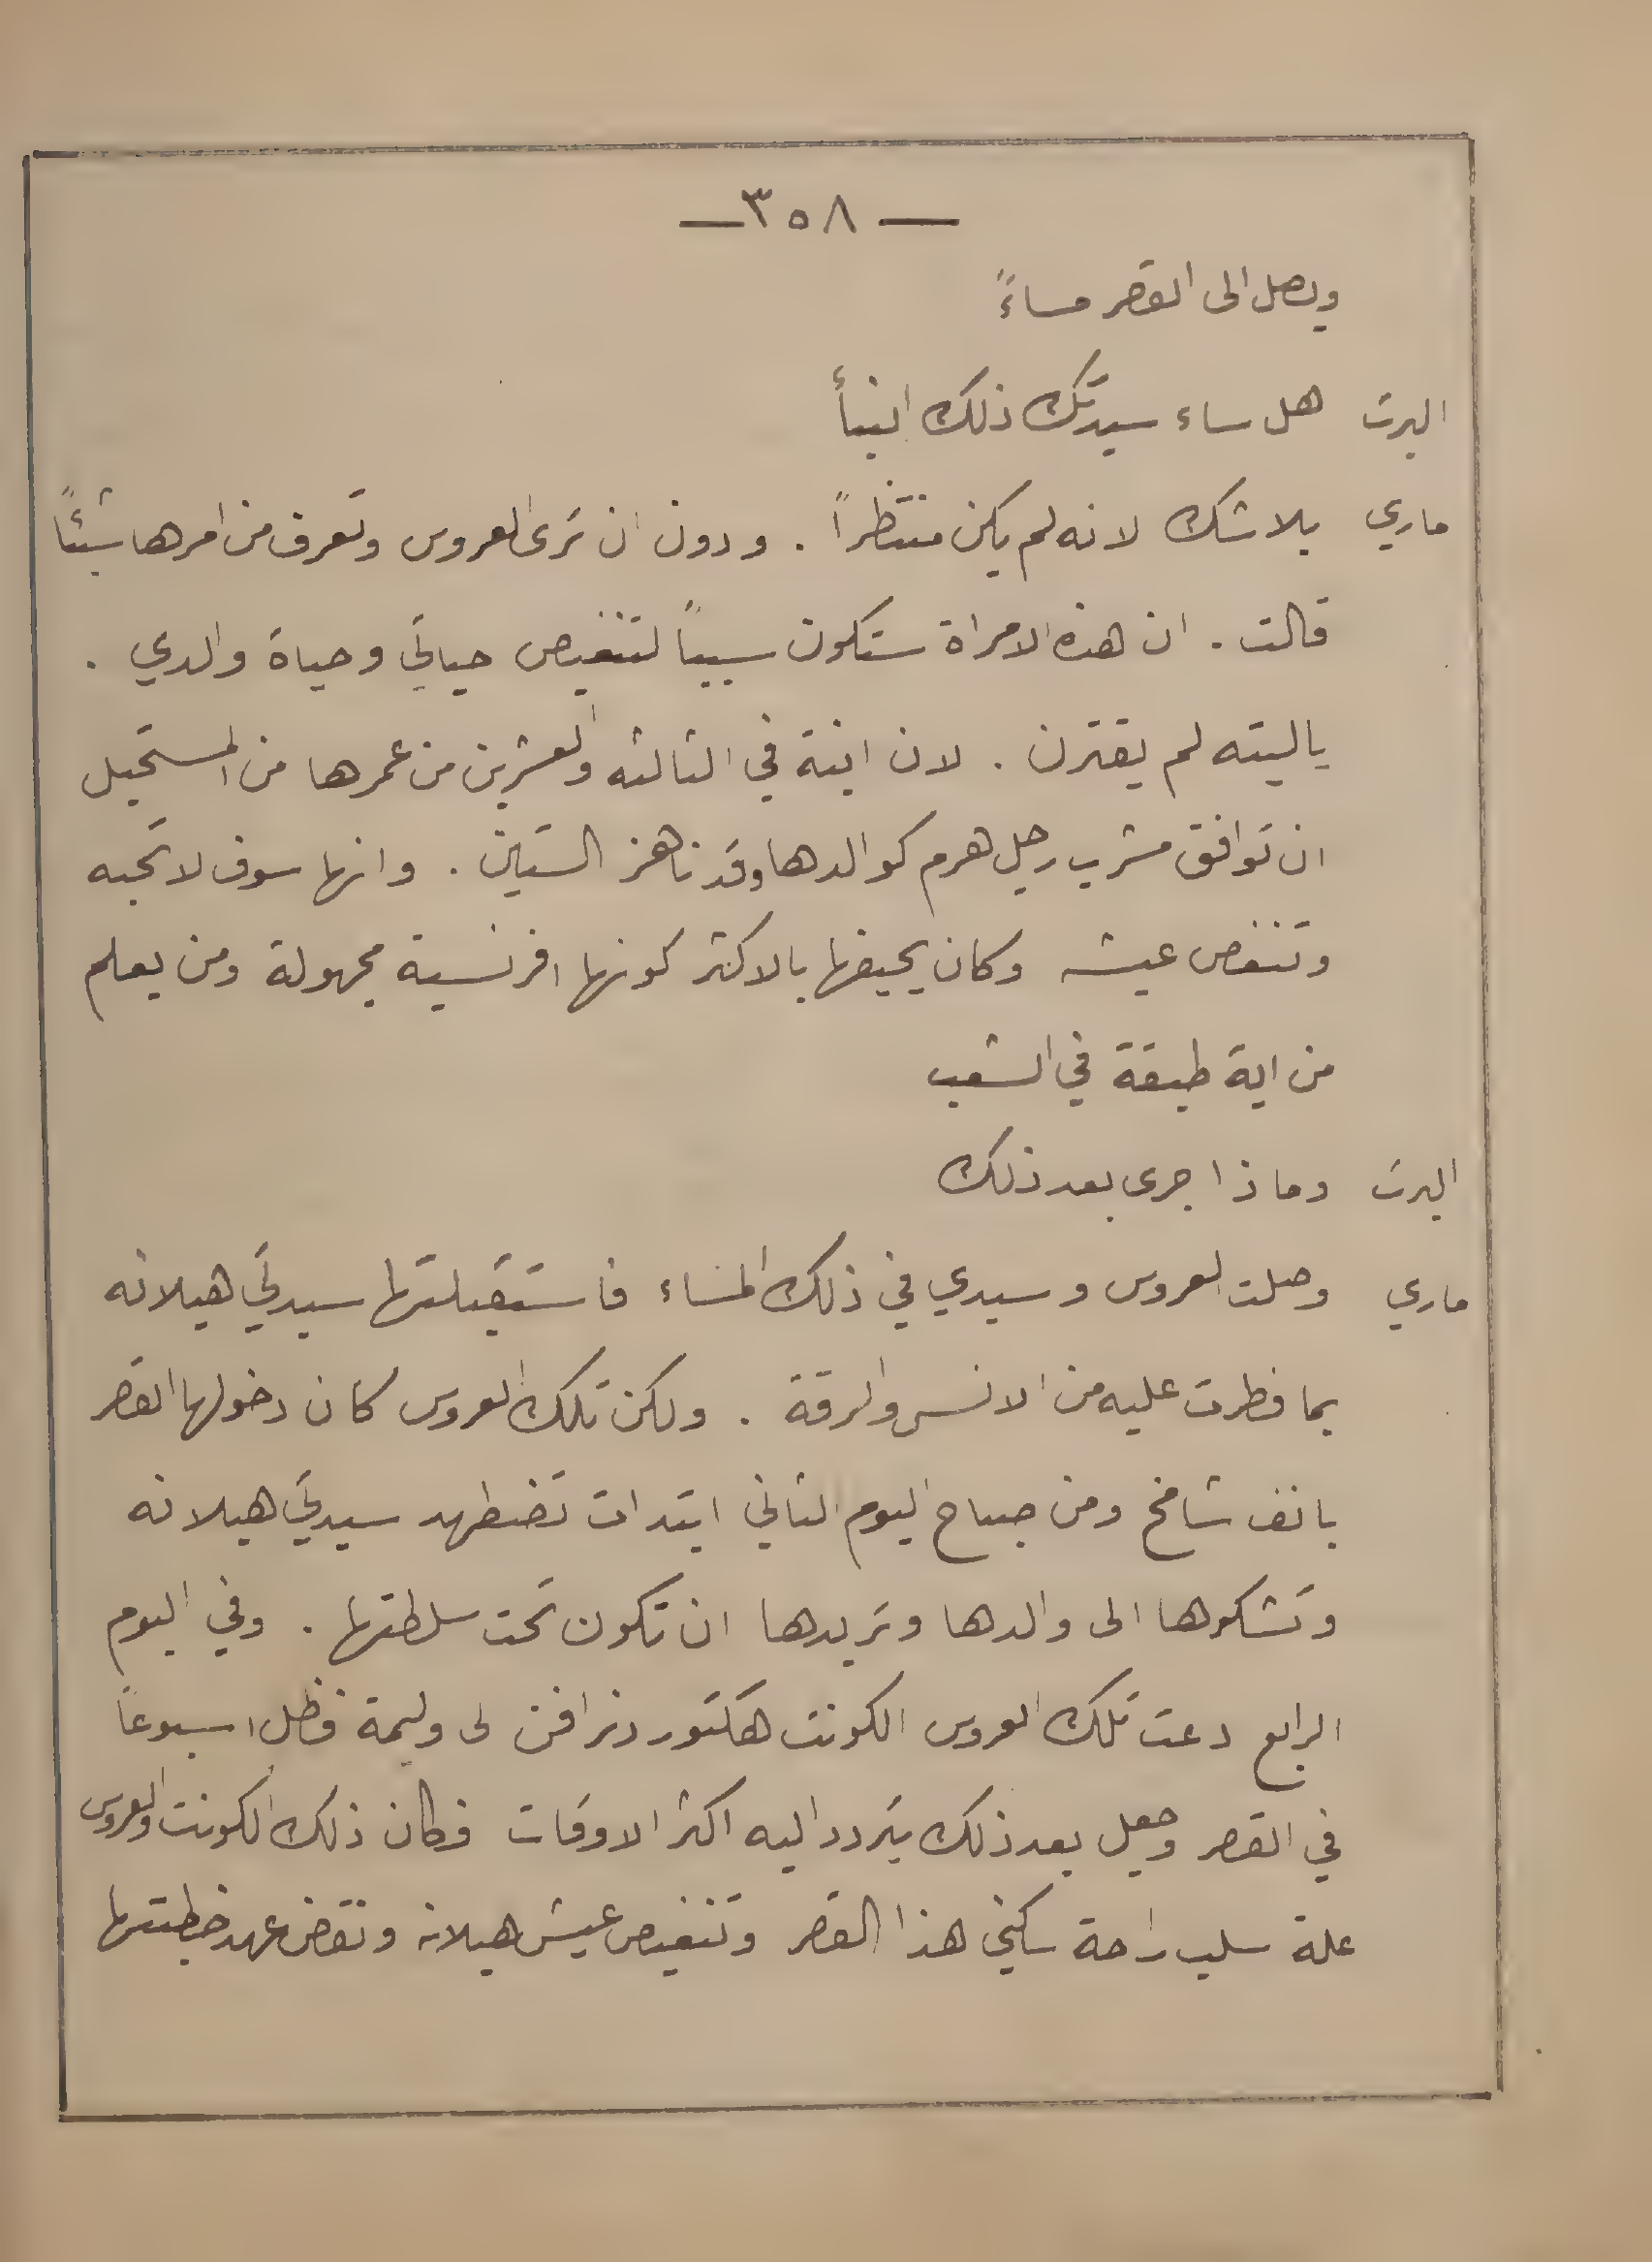 — ٣٥٨ —
ويصل الى القصر مساءً
البرت هل ساء سيدتك ذلك النبأ
ماري بلا شك لانه لم يكن منتظراً . ودون ان ترى العروس وتعرف من امرها شيئاً
قالت . ان هذه الامراة ستكون سبباً لتنغيص حياتي وحياة والدي .
ياليته لم يقترن . لان ابنة في الثالثه والعشرين من عمرها من المستحيل
ان توافق مشرب رجل هرم كوالدها وقد ناهز الستين . وانها سوف لا تحبه
وتنغص عيشه وكان يخيفها بالاكثر كونها افرنسية مجهولة ومن يعلم
من اية طبقة في الشعب
البرت وماذا جرى بعد ذلك
ماري وصلت العروس وسيدي في ذلك المساء فاستقبلتها سيدتي هيلانه
بما فطرت عليه من الانس والرقة . ولكن تلك العروس كان دخولها القصر
بانف شامخ ومن صباح اليوم الثاني ابتدات تضطهد سيدتي هيلانه
وتشكوها الى والدها وتريدها ان تكون تحت سلطتها . وفي اليوم
الرابع دعت تلك العروس الكونت هكتور دنرافن لى وليمة فظل اسبوعاً
في القصر وجعل بعد ذلك يتردد اليه اكثر الاوقات فكان ذلك الكونت والعروس
علة سلب راحة ساكني هذا القصر وتنغيص عيش هيلانه ونقض عهد خطبتها